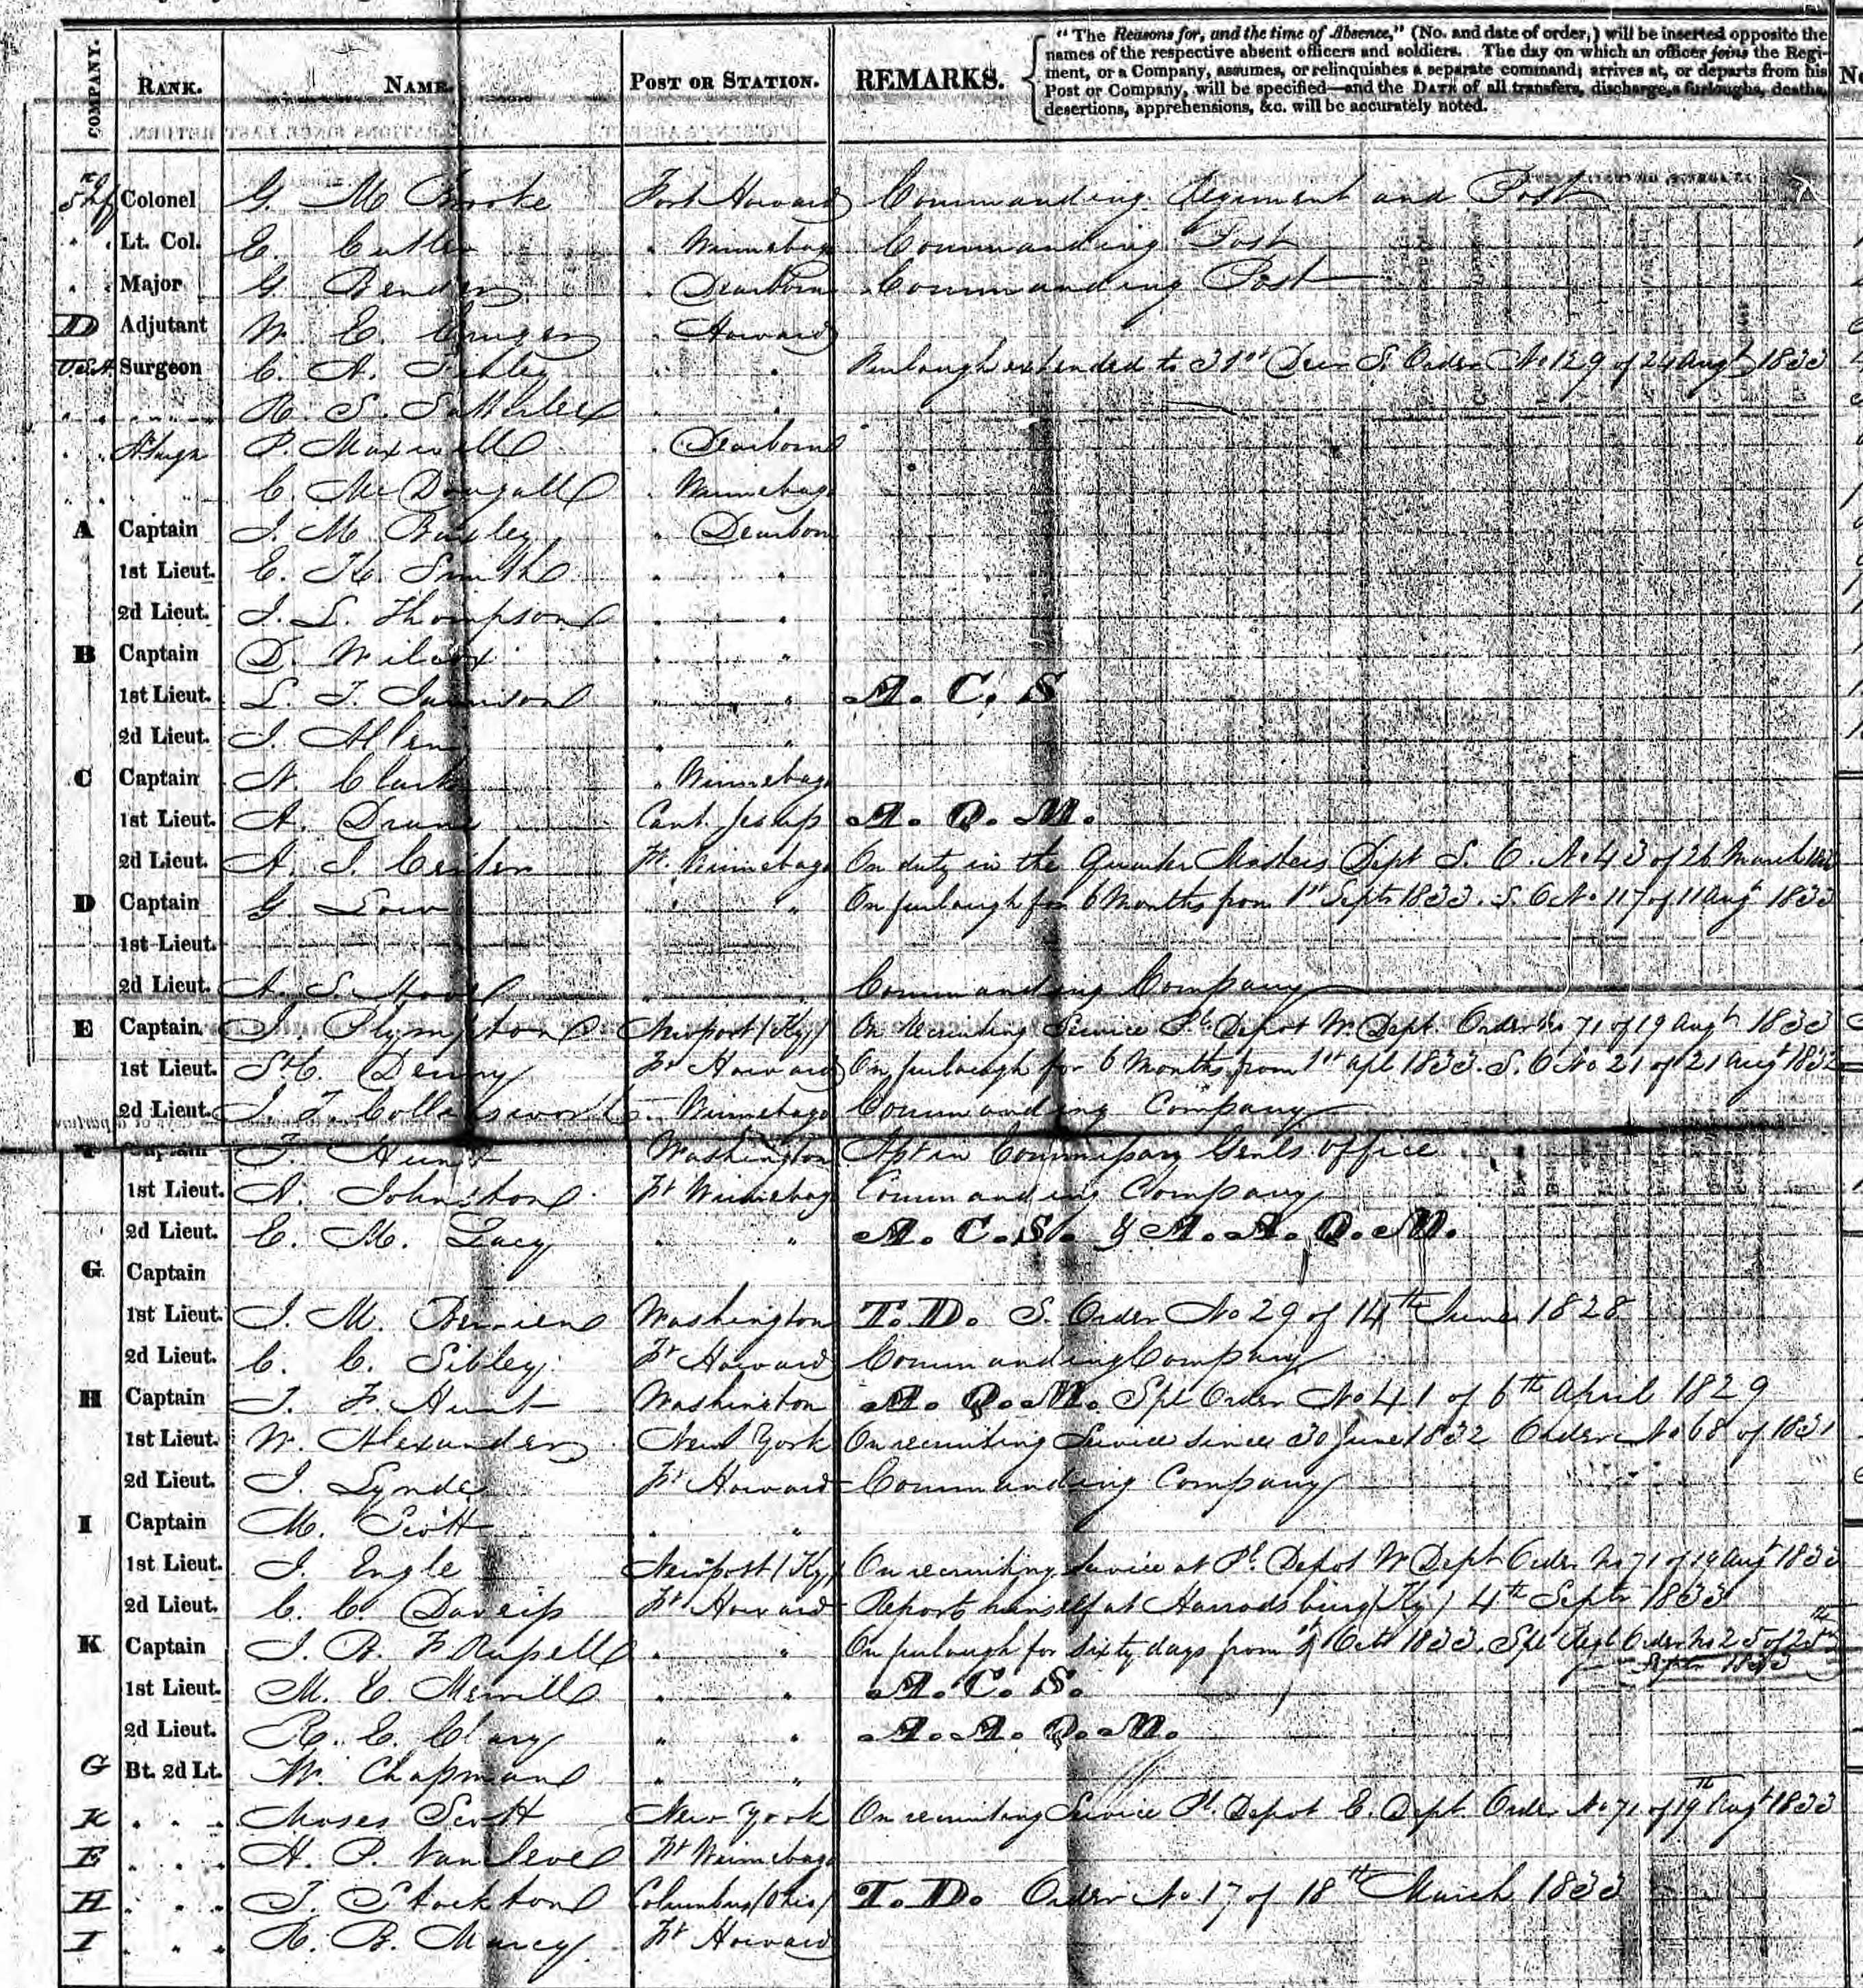 COMPANY. RANK. NAME. POST OR STATION. REMARKS.
"The Reasons for, and the time of Absence," (No. and date of order,) will be inserted opposite the
names of the respective absent officers and soldiers. The day on which an officer joins the Regi-
ment, or a Company, assumes, or relinquishes a separate command; arrives at, or departs from his
Post or Company, will be specified—and the DATE of all transfers, discharges, furloughs, deaths,
desertions, apprehensions, &c. will be accurately noted.
5th Inf Colonel G. M Brooke Fort Howard Commanding Regiment and Post
" " Lt. Col. E. Cutler " Winnebago Commanding Post
" " Major G. Bender " Dearborn Commanding Post
D Adjutant W. E. Cruger " Howard
U.S.A Surgeon C. A. Finley " " Furlough extended to 31st Decr S. Order No 129 of 24 Augt 1833
" " " R. S. Satterlee " "
" " A Surgn P. Maxwell " Dearborn
" " " C. McDougall " Winnebago
A Captain J. M Baxley " Dearborn
1st Lieut. E. K. Smith " "
2d Lieut. J. L. Thompson " "
B Captain D. Wilcox " "
1st Lieut. L. T. Jamison " " A. C. S
2d Lieut. J. Allen " "
C Captain N. Clark " Winnebago
1st Lieut. A. Drane Cant. Jesup A. Q. M.
2d Lieut. A. J. Center Ft. Winnebago On duty in the Quarter Masters Dept S. O. No 43 of 26 March
D Captain G. Low " " On furlough for 6 Months from 1st Septr 1833. S. O No 117 of 11 Augt 1833
1st Lieut.
2d Lieut. A. S. Hooe " " Commanding Company
E Captain J. Plympton Newport (Ky) On Recruiting Service Pl. Depot W. Dept. Order No 71 of 19 Augt 1833
1st Lieut. St C. Denny Ft Howard On furlough for 6 Months from 1st Apl 1833. S. O No 21 of 21 Augt 1832
2d Lieut. J. T. Collinsworth " Winnebago Commanding Company
Captain T. Hunt Washington Apt in Commissary Genls office
1st Lieut. A. Johnston Ft Winnebago Commanding Company
2d Lieut. E. K. Lacy " " A. C. S. & A. A. Q. M.
G Captain
1st Lieut. J. M. Berrien Washington T. D. S. Order No 29 of 14th June 1828
2d Lieut. C. C. Sibley Ft Howard Commanding Company
H Captain T. F. Hunt Washington A. Q. M. Spl Order No 41 of 6th April 1829
1st Lieut. W. Alexander New York On recruiting Service since 30 June 1832 Order No 68 of 1831
2d Lieut. I. Lynde Ft Howard Commanding Company
I Captain M. Scott " "
1st Lieut. J. Engle Newport (Ky) On recruiting Service at Pl. Depot W Dept Order No 71 of 19 Augt 1833
2d Lieut. C. C. Daveiss Ft Howard Reports himself at Harrodsburg (Ky) 4th Septr 1833
K Captain J. B. F Russell " " On furlough for sixty days from Octr 1833. Spl Regl Order No 25 of 25th
Septr 1833
1st Lieut. M. E. Merrill " " A. C. S.
2d Lieut. R. E. Clary " " A. A. Q. M.
G Bt. 2d Lt. W. Chapman " "
K " " " Moses Scott New York On recruiting Service Pl. Depot E. Dept. Order No 71 of 19th Augt 1833
E " " " H. P. Vancleve Ft Winnebago
H " " " T. Stockton Columbus (Ohio) T. D. Order No. 17 of 18th March 1833
I " " " R. B. Marcy Ft Howard